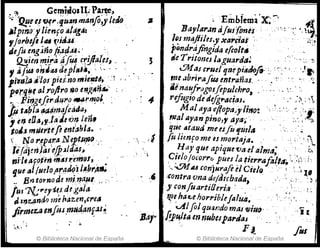 Gemidos II. Parte,
Que es ver, quan manso, y ledo
alpino y lienço alaga:
y sorbese las vidas
de su engaño fiadas.
Quien mira á sus cristales,
y á sus ondas de plata,
que al ro stro no engaña.
Finge ser duro marmol
su tabla adamascada,
y en ella, y la de vn leño
todas muerte se entabla.
No repara Neptuno
le sajen las espaldas,
ni le açoten mas remos,
que al suelo arado labran.
En torno de mi naue
sus reyes de gala
dançando me hazen, crea
firmeza en sus mudanças:
Bay-
Emblema X.
Baylaran á sus sones
los mastiles, y xarcias
pondra fingida escolta
de Tritones la guarda:
Mas cruel que piadoso
me abrira sus entrañas,
de naufragos sepulchro,
refugio de desgracias.
Mal aya esopo, y lino:
mal ayan pino, y aya;
que ataud me es su quilla
su lienço me es mortaja.
Hay que apique va el alma;
Cielo socorro pues la tierra falta,
Mas conjurase el Cielo
contra vna desdichada,
y con su artilleria
me haze horrible salua,
Al sol quando mas viuo
sepulta en nubes pardas
F
sus
© Biblioteca Nacional de España
© Biblioteca Nacional de España